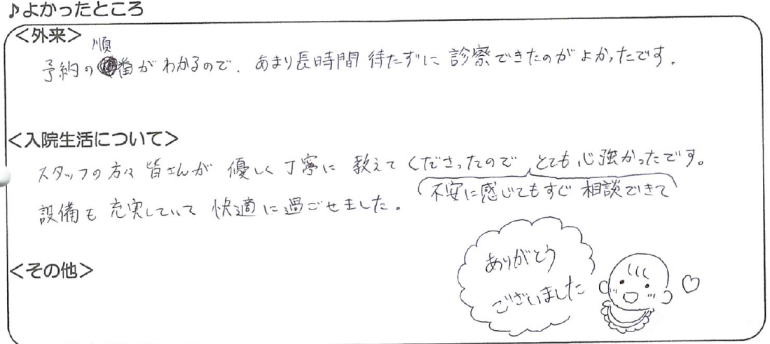 ♪よかったところ
<外来>
予約の順番がわかるので、あまり長時間待たずに診察できたのがよかったです。
<入院生活について>
スタッフの方々皆さんが優しく丁寧に教えてくださったので、不安に感じてもすぐ相談できてとても心強かったです。
設備も充実していて快適に過ごせました。
<その他>
ありがとう
ございました